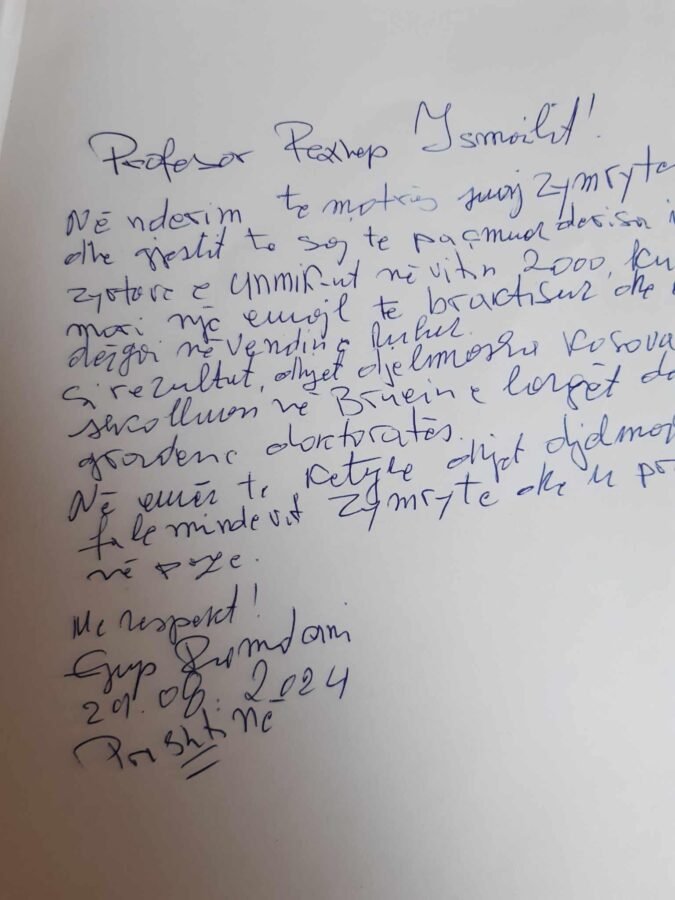 Profesor Rexhep Ismailit!
Në nderim te motrës suaj Zymryte
dhe gjestit te saj te paçmuar derisa i
zyrtare e UNMIK-ut në vitin 2000, ku
mori një email te braktisur dhe
dërgoi në vendin e duhur.
Si rezultat, dhjet djelmosha Kosova
shkolluan në Brunein e largët
gradën e doktoratës.
Në emër te ketyre dhjet djelmos
faleminderit Zymryte dhe u
në paqe.
Me respekt!
Ramdani
29.08.2024
Prishtinë